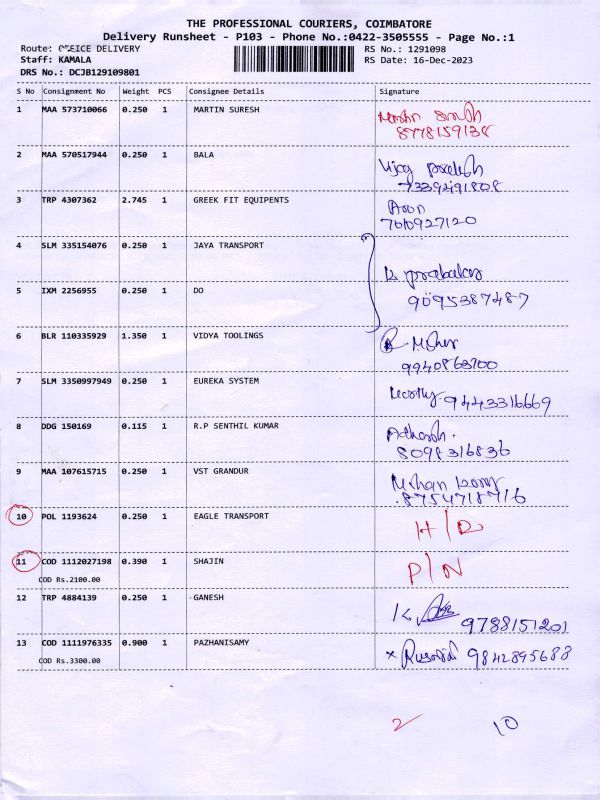 THE PROFESSIONAL COURIERS, COIMBATORE
Delivery Runsheet - P103 - Phone No.:0422-3505555 - Page No.:1
Route: OFFICE DELIVERY RS No.: 1291098
Staff: KAMALA RS Date: 16-Dec-2023
DRS No.: DCJB129109801
S No Consignment No Weight PCS Consignee Details Signature
1 MAA 573710066 0.250 1 MARTIN SURESH
8778159138
2 MAA 570517944 0.250 1 BALA
Vijay
7339491808
3 TRP 4307362 2.745 1 GREEK FIT EQUIPENTS Arun
7010927120
4 SLM 335154076 0.250 1 JAYA TRANSPORT
K prabakar
5 IXM 2256955 0.250 1 DO 9095387487
6 BLR 110335929 1.350 1 VIDYA TOOLINGS
9940863700
7 SLM 3350997949 0.250 1 EUREKA SYSTEM 9443316669
8 DDG 150169 0.115 1 R.P SENTHIL KUMAR
8098316836
9 MAA 107615715 0.250 1 VST GRANDUR Mohan
8754718716
10 POL 1193624 0.250 1 EAGLE TRANSPORT H/D
11 COD 1112027198 0.390 1 SHAJIN P/N
COD Rs.2100.00
12 TRP 4884139 0.250 1 GANESH K 9788151201
13 COD 1111976335 0.900 1 PAZHANISAMY x 9842895688
COD Rs.3300.00
2 10